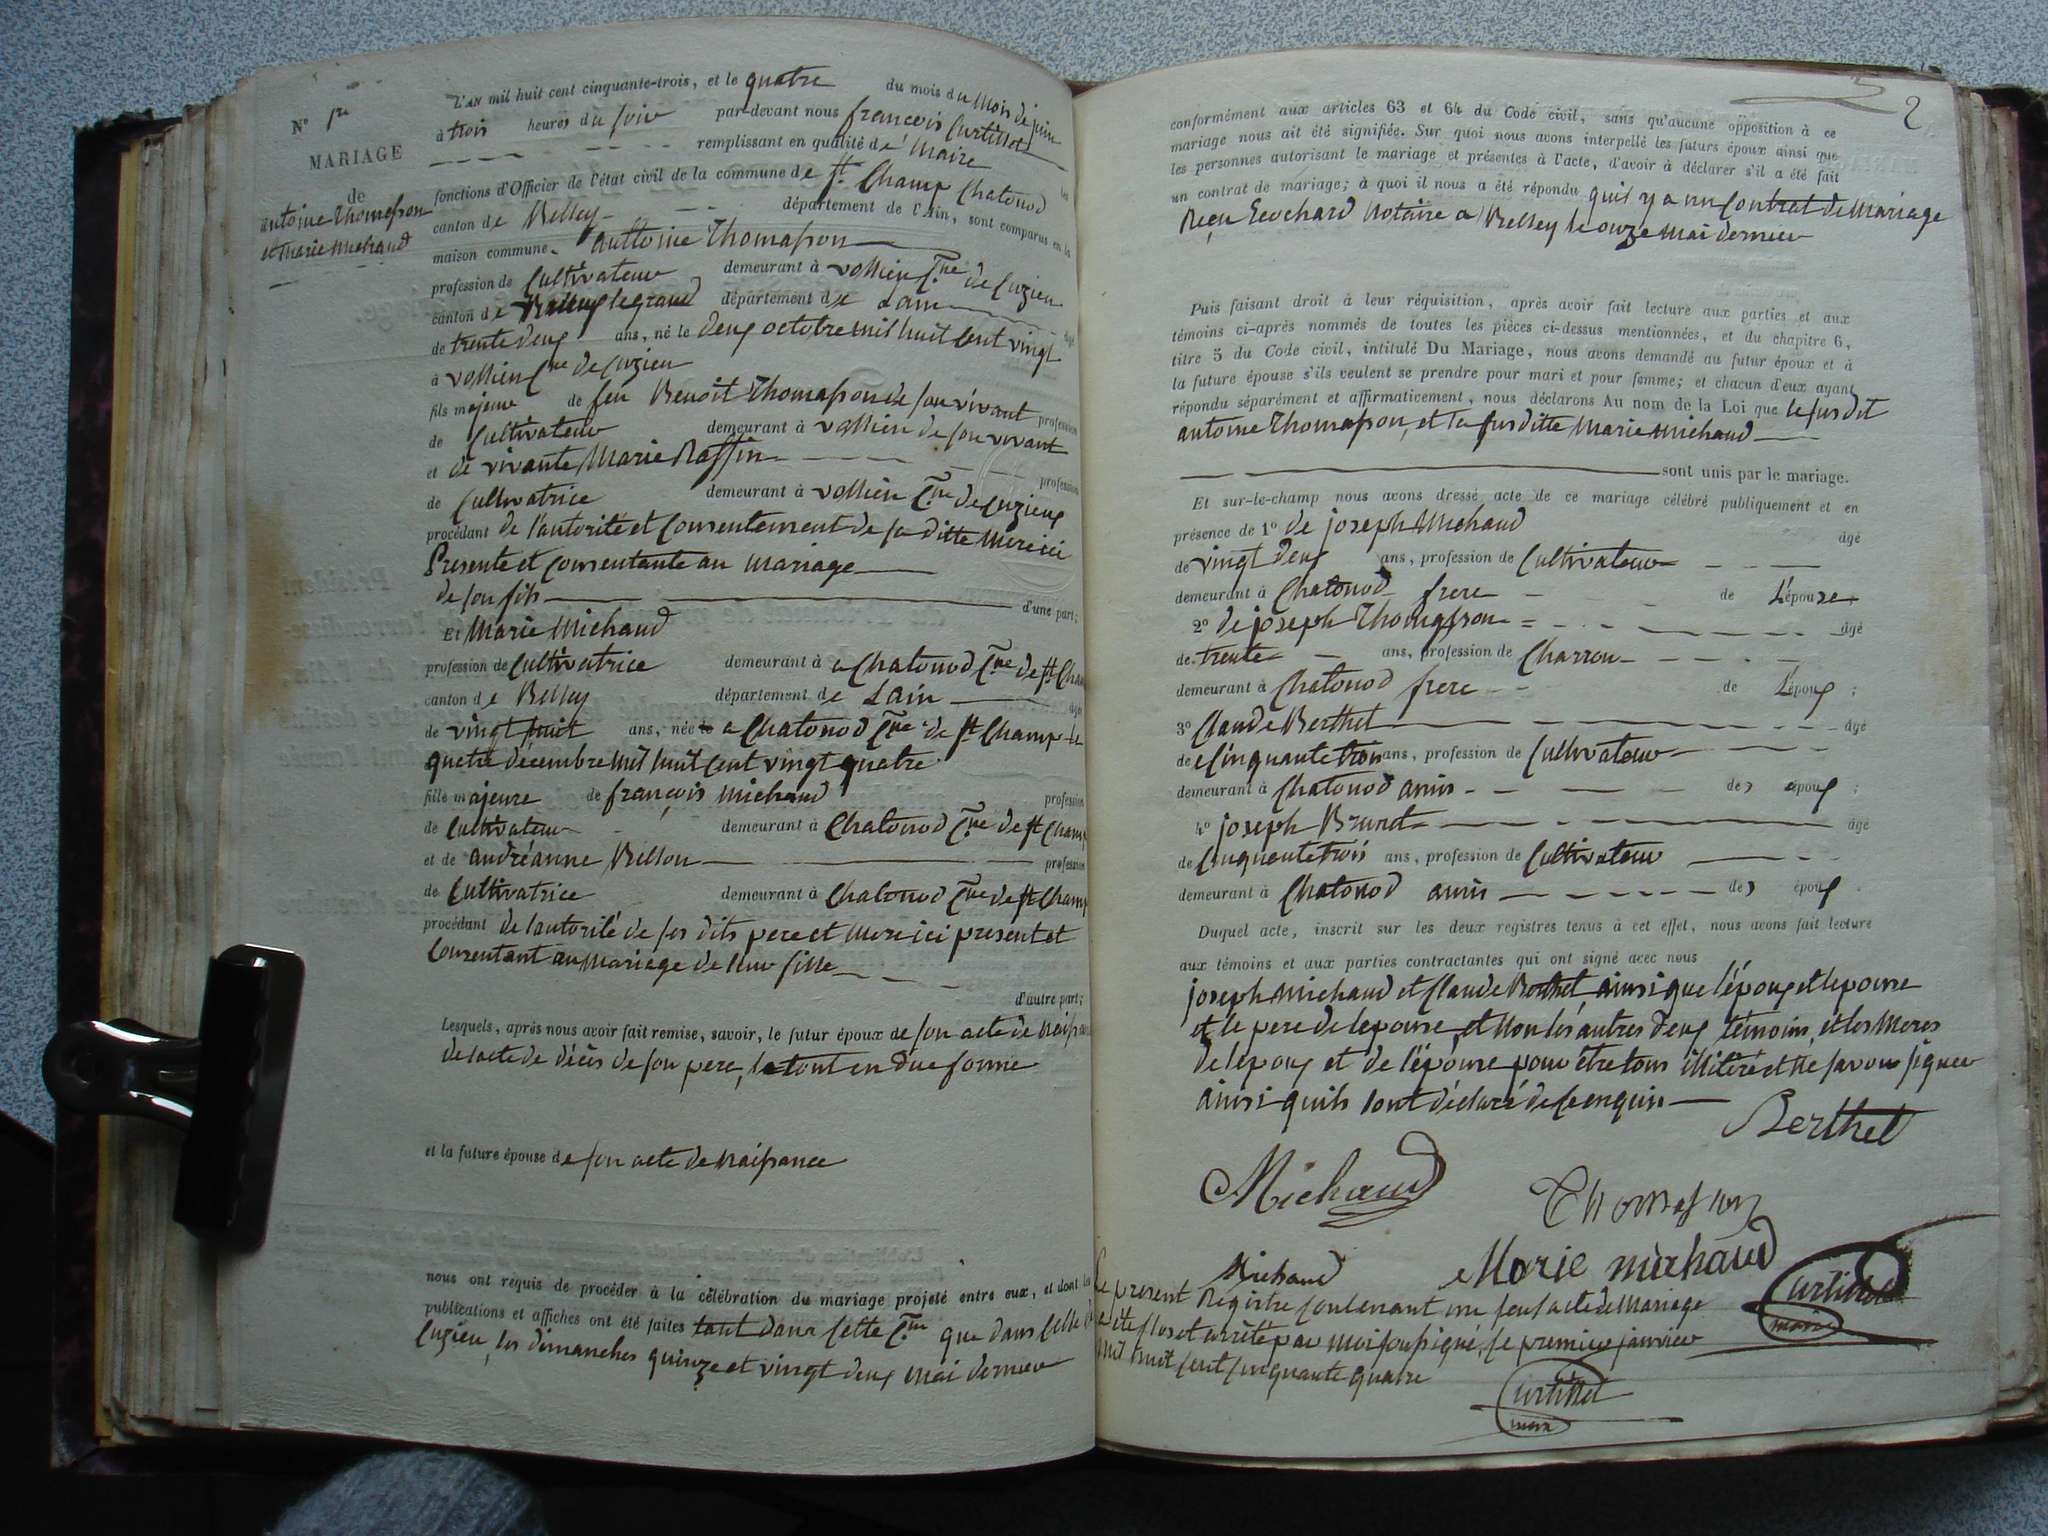 N° 1er
MARIAGE
de
antoine Thomasson
et Marie Michaud
L'AN mil huit cent cinquante-trois, et le quatre du mois du Mois de juin
à trois heures du soir par-devant nous francois Curtillet
remplissant en qualité de Maire les
fonctions d'Officier de l'état civil de la commune de St Champ Chatonod
canton de Belley département de l'Ain, sont comparus en la
maison commune. anttoine Thomasson
profession de Cultivateur demeurant à vollien Cne de Cuzieu
canton de legrand département de Lain âgé
de trente deux ans, né le deux octobre mil huit Cent vingt
à vollien Cne de Cuzieu
fils majeur de feu Benoît Thomasson de son vivant profession
de Cultivateur demeurant à vollien de son vivant
et de vivante Marie Raffin profession
de Cultivatrice demeurant à vollien Cne de Cuzieux
procédant de l'autorité et Consentement de sa ditte Mere ici
Presente et Consentante au mariage
de son fils d'une part;
Et Marie Michaud
profession de Cultivatrice demeurant à a Chatonod Cne de St Cham
canton de Belley département de Lain âgé
de vingt huit ans, née le a Chatonod Cne de St Champ le
quatre décembre mil huit Cent vingt quatre
fille majeure de françois Michaud profession
de Cultivateur demeurant à Chatonod Cne de St Champ
et de andréanne Billon profession
de Cultivatrice demeurant à Chatonod Cne de St Champ
procédant de l'autorité de ses dits pere et Mere ici present et
Consentant au Mariage de leur fille
d'autre part;
Lesquels, après nous avoir fait remise, savoir, le futur époux de son acte de Naissan
de lacte de décès de son pere, le tout en due forme
et la future épouse de son acte de Naissance
nous ont requis de procéder à la célébration du mariage projeté entre eux, et dont les
publications et affiches ont été faites tant dans Cette Cne que dans Celle de
Cuzieu, les dimanches quinze et vingt deux Mai dernier
2
conformément aux articles 63 et 64 du Code civil, sans qu'aucune opposition à ce
mariage nous ait été signifiée. Sur quoi nous avons interpellé les futurs époux ainsi que
les personnes autorisant le mariage et présentes à l'acte, d'avoir à déclarer s'il a été fait
un contrat de mariage; à quoi il nous a été répondu quil y a un Contrat de Mariage
Reçu Notaire a Belley le onze mai dernier
Puis faisant droit à leur réquisition, après avoir fait lecture aux parties et aux
témoins ci-après nommés de toutes les pièces ci-dessus mentionnées, et du chapitre 6,
titre 5 du Code civil, intitulé Du Mariage, nous avons demandé au futur époux et à
la future épouse s'ils veulent se prendre pour mari et pour femme; et chacun d'eux ayant
répondu séparément et affirmativement, nous déclarons Au nom de la Loi que le susdit
antoine Thomasson, et la susditte Marie Michaud
sont unis par le mariage.
Et sur-le-champ nous avons dressé acte de ce mariage célébré publiquement et en
présence de 1° de joseph Michaud âgé
de vingt deux ans, profession de Cultivateur
demeurant à Chatonod frere de L'épouse;
2° de joseph Thomasson âgé
de trente ans, profession de Charron
demeurant à Chatonod frere de L'époux;
3° Claude Berthet âgé
de Cinquante trois ans, profession de Cultivateur
demeurant à Chatonod amis des époux;
4° joseph Brunet âgé
de Cinquante trois ans, profession de Cultivateur
demeurant à Chatonod amis des époux
Duquel acte, inscrit sur les deux registres tenus à cet effet, nous avons fait lecture
aux témoins et aux parties contractantes qui ont signé avec nous
joseph Michaud et Claude Berthet ainsi que l'époux et lepouse
et le pere de lepouse, et Non les autres deux témoins, et les Meres
de lepoux et de l'épouse pour être tous illitéré et Ne savoir signer
ainsi quils lont déclaré de Ce enquis
Berthet
Michaud
Thomasson
Michaud
Marie michaud
Curtillet
maire
Le present Registre Contenant un seul acte de Mariage
a été Clos et arrêté par Moi soussigné, le premier janvier
Mil huit Cent Cinquante quatre
Curtillet
maire